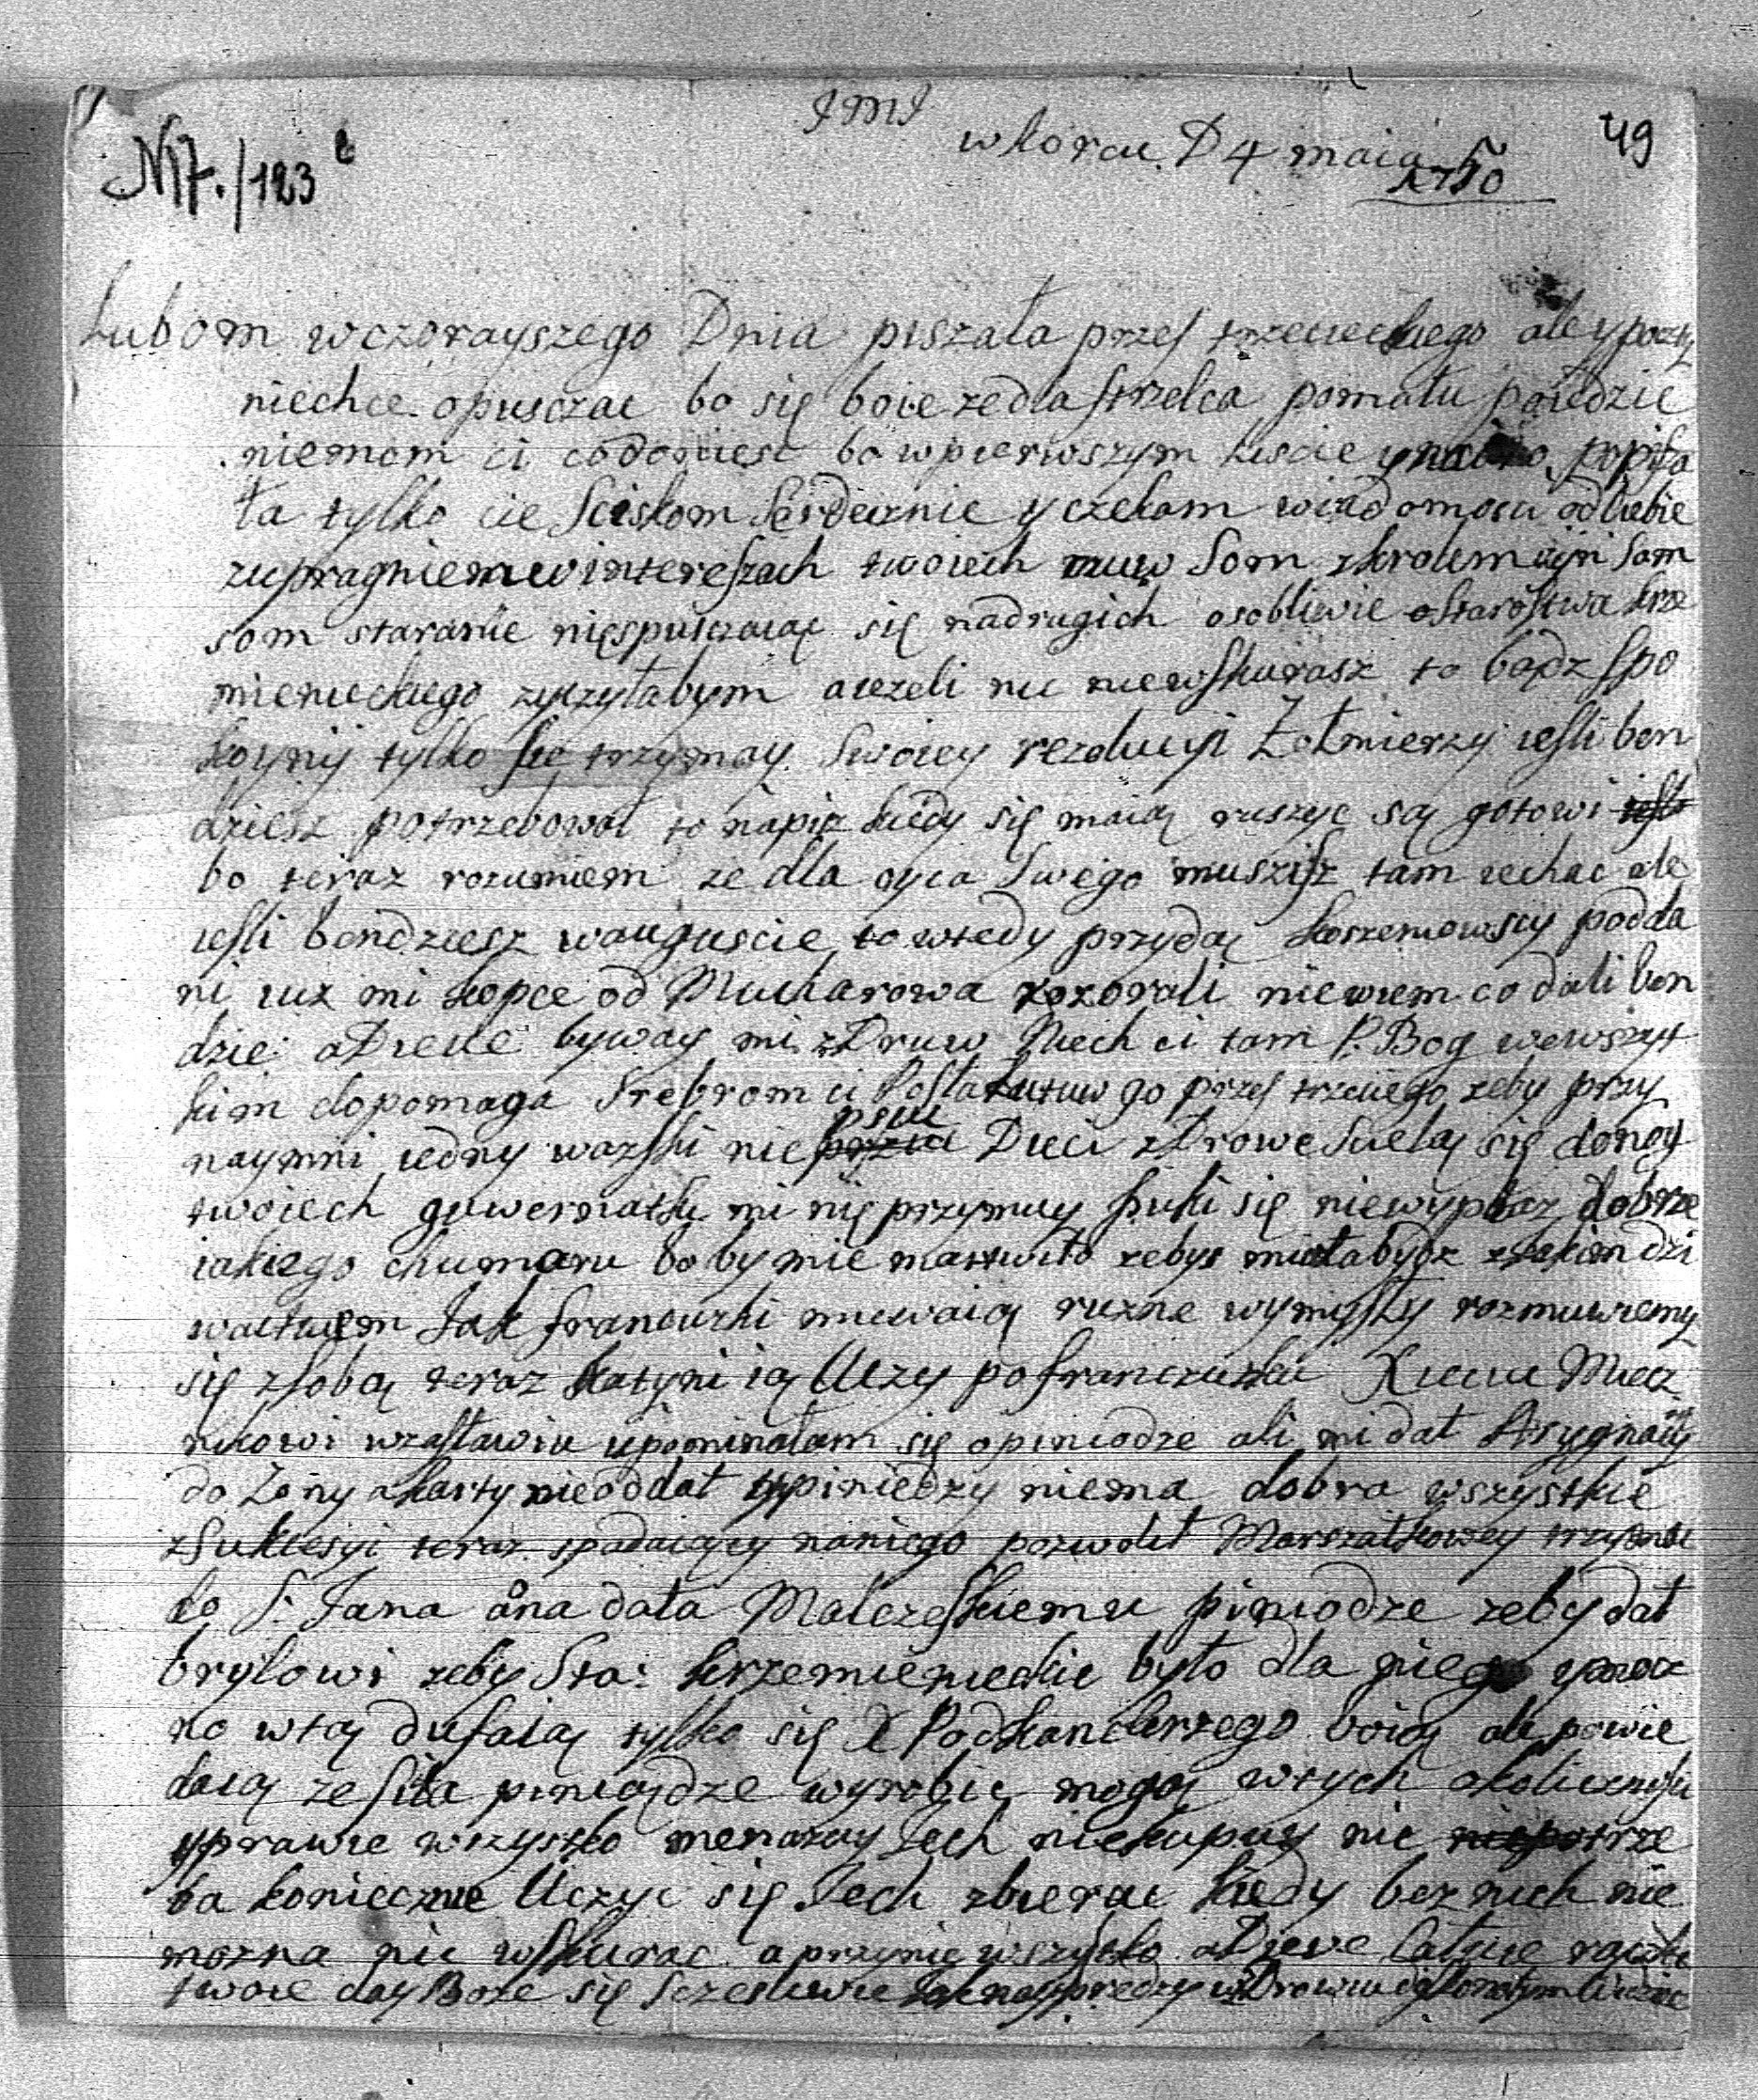 JMJ
49
w torcu D 4 maia 1750
N17./123
Lubom wczorayszego Dnia piszała przes trzecieckiego ale y poczty
niechce opuszczac bo się boie ze dla strzelca pomału poiedzie
niemom ci co doniesc bo w pierwszym liscie popisa
ła tylko cie Sciskom Serdecznie y czekom wiadomosci od ciebie
zupragnieniem w interesach twoiech muw Som z krolem czyn Som
som staranie niespuszczaiąc się nadrugich osobliwie o Starostwa krze
mienieckiego zyczyłabym a iezeli nic niewskurasz to bądz spo
koyny tylko się trzymay Swoiey rezolucyi Zołmierzy iesli ben
dziesz potrzebowal to napisz kiedy się maią ruszyc są gotowi
bo teraz rozumiem ze dla oyca Swego muszisz tam iechac ale
iesli bendziesz w auguscie to wtedy przydą podda
ni iuz mi kopce od Mucharowa rozorali niewiem co dali ben
dzie aDieue byway mi zDruw Niech ci tam P. Bog wewszyt
kim dopomaga Srebrom ci Posłała przes trzeciego zeby przy
naymni iedny wazki nie psuc Dieci zDrowe Scielą się donog
twoiech guwernatki mi nie przymuy puki się niewypytaz dobrze
iakiego chumoru bo by mie martwiło zebys miała bydz z takim dzi
wactwem Jak francuzki miewaią ruzne wymysły rozmuwiemy
się zsobą teraz Katyni ią Uczy pofranczusku Xieciu Miecz
nikowi wzasławiu upominałam się opiniodze ali mi dał Asygnacyi
do Zony a karty nieoddał y piniedzy niema dobra wszystkie
zSukcesyi teraz spadaiący naniego pozwolił Marszałkowey trzymac
do S. Jana ona dała Malczeskiemu piniodze zeby dał
brylowi zeby Sta: krzemienieckie było dla niego y moc
no wtą dufaią tylko się X Podkanclerzego boią ale powie
daią ze siła piniądze wyrobic mogą w tych okolicznosci
y prawie wszystko menazuy Jech niekupuy nic
ba koniecznie Uczyc się Jech zbierac kiedy beznich nie
mozna nic wskurac a przynię wszystko aDieue Całuie rączki
twoie day Boze się Szczesliwie iak nayprędzy w zDrowiu oglondały